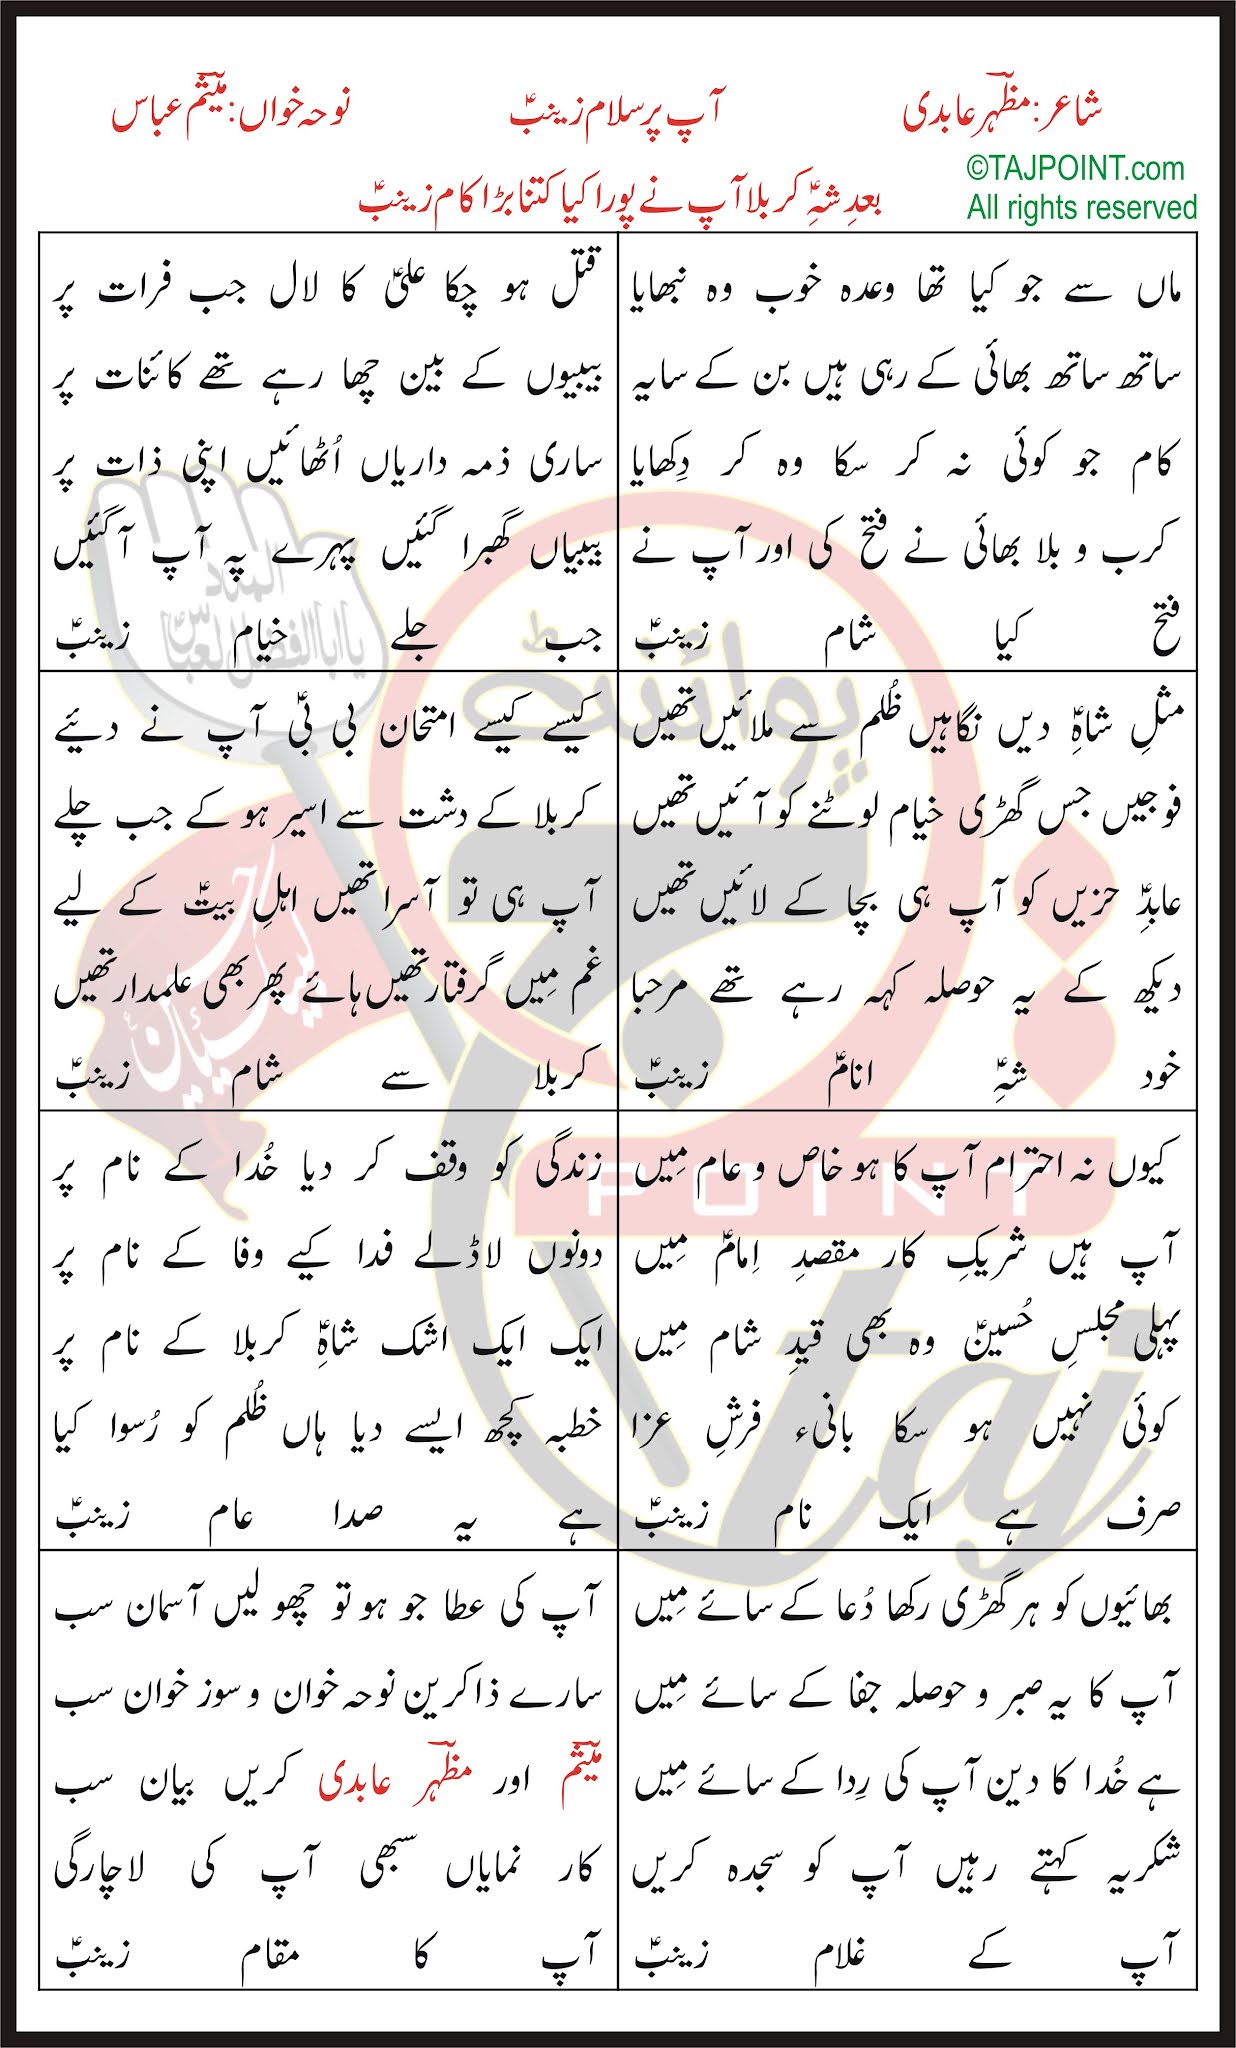 شاعر: مظہر عابدی
آپ پر سلام زینبؑ
نوحہ خواں: میثم عباس
©TAJPOINT.com
All rights reserved
بعدِ شہِؑ کربلا آپ نے پورا کیا کتنا بڑا کام زینبؑ
ماں سے جو کیا تھا وعدہ خوب وہ نبھایا
ساتھ ساتھ بھائی کے رہی ہیں بن کے سایہ
کام جو کوئی نہ کر سکا وہ کر دِکھایا
کرب و بلا بھائی نے فتح کی اور آپ نے
فتح کیا شام زینبؑ
قتل ہو چکا علیؑ کا لال جب فرات پر
بیبیوں کے بین چھا رہے تھے کائنات پر
ساری ذمہ داریاں اُٹھائیں اپنی ذات پر
بیبیاں گھبرا گئیں پہرے پہ آپ آ گئیں
جب جلے خیام زینبؑ
مثلِ شاہِؑ دیں نگاہیں ظُلم سے ملائیں تھیں
فوجیں جس گھڑی خیام لوٹنے کو آئیں تھیں
عابدِؑ حزیں کو آپ ہی بچا کے لائیں تھیں
دیکھ کے یہ حوصلہ کہہ رہے تھے مرحبا
خود شہِؑ انامؑ زینبؑ
کیسے کیسے امتحان بی بیؑ آپ نے دیئے
کربلا کے دشت سے اسیر ہو کے جب چلے
آپ ہی تو آسرا تھیں اہلِ بیتؑ کے لیے
غم مِیں گرفتار تھیں ہائے پھر بھی علمدار تھیں
کربلا سے شام زینبؑ
کیوں نہ احترام آپ کا ہو خاص و عام مِیں
آپ ہیں شریکِ کار مقصدِ اِمامؑ مِیں
پہلی مجلسِ حُسینؑ وہ بھی قیدِ شام مِیں
کوئی نہیں ہو سکا بانیء فرشِ عزا
صرف ہے ایک نام زینبؑ
زندگی کو وقف کر دیا خُدا کے نام پر
دونوں لاڈلے فدا کیے وفا کے نام پر
ایک ایک اشک شاہِؑ کربلا کے نام پر
خطبہ کچھ ایسے دیا ہاں ظُلم کو رُسوا کیا
ہے یہ صدا عام زینبؑ
بھائیوں کو ہر گھڑی رکھا دُعا کے سائے مِیں
آپ کا یہ صبر و حوصلہ جفا کے سائے مِیں
ہے خُدا کا دین آپ کی رِدا کے سائے مِیں
شکریہ کہتے رہیں آپ کو سجدہ کریں
آپ کے غلام زینبؑ
آپ کی عطا جو ہو تو چھو لیں آسمان سب
سارے ذاکرین نوحہ خوان و سوز خوان سب
میثم اور مظہر عابدی کریں بیان سب
کار نمایاں سبھی آپ کی لاچارگی
آپ کا مقام زینبؑ
پوائنٹ
POINT
Taj
المدد
یا ابا الفضل العباس